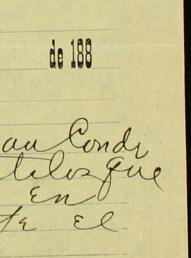 de 188
au Condi
tulos que
En
te el